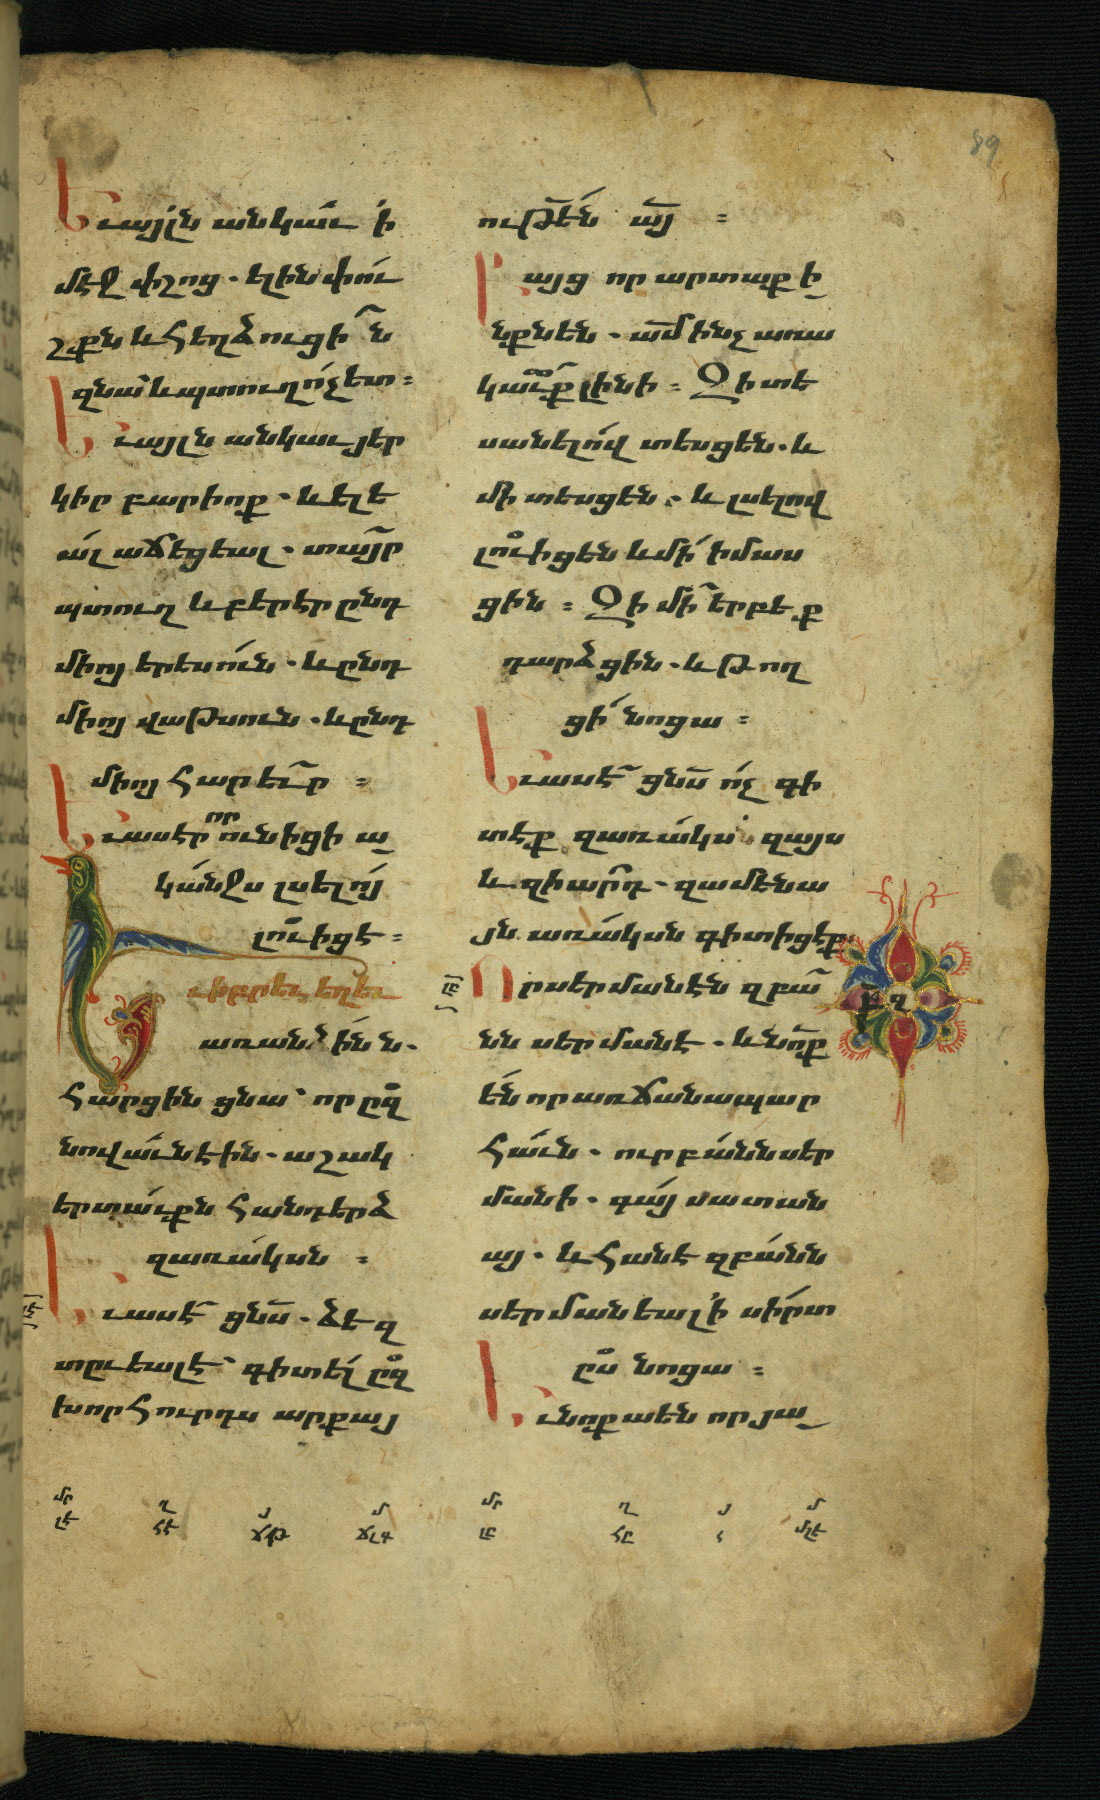 89
Եւ այլն անկաւ ի
մէջ փշոց. ելին փու
շքն և հեղձուցին
զնա և պտուղ ոչ ետ։
Եւ այլն անկաւ յեր
կիր բարիոք. և ելե
ալ աճեցեալ. տայր
պտուղ և բերէր ընդ
միոյ երեսուն. և ընդ
միոյ վաթսուն. և ընդ
միոյ հարեւր ։
Եւ ասէր որ ունիցի ա
կանջս լսելոյ
լուիցէ։
Եւ իբրեւ եղեւ
առանձինն.
հարցին ցնա՝ որ ըզ
նովաւն էին. աշակ
երտաւքն հանդերձ
զառակսն ։
Եւ ասէ ցն̄ս. ձեզ
տըւեալ է՝ գիտել ըզ
խորհուրդս արքայ
ութե̄ն ա̄յ ։
Բայց որ արտաքի
նքն են. ա̄մ ինչ առա
կաւք լինի ։ Զի տե
սանելով տեսցեն. և
մի տեսցեն. և լսելով
լուիցեն և մի իմաս
ցին ։ Զի մի երբեք
դարձցին. և թող
ցի նոցա ։
Եւ ասէ ցն̄ս ոչ գի
տէք զառակս զայս
և զիարդ. զամենա
յն առակսն գիտիցէք
լը Որ սերմանէն զբա
նն սերմանէ. և նոքա
են որ առ ճանապար
հաւն. ուր բանն սեր
մանի. գայ սատան
այ. և հանէ զբանն
սերմանեալ ի սիրտ
ըս նոցա ։
Եւ նոքա են որ յա
մր ղ յ մ մր ղ յ մ
լէ հէ ճթ ճլգ լը հը մլէ